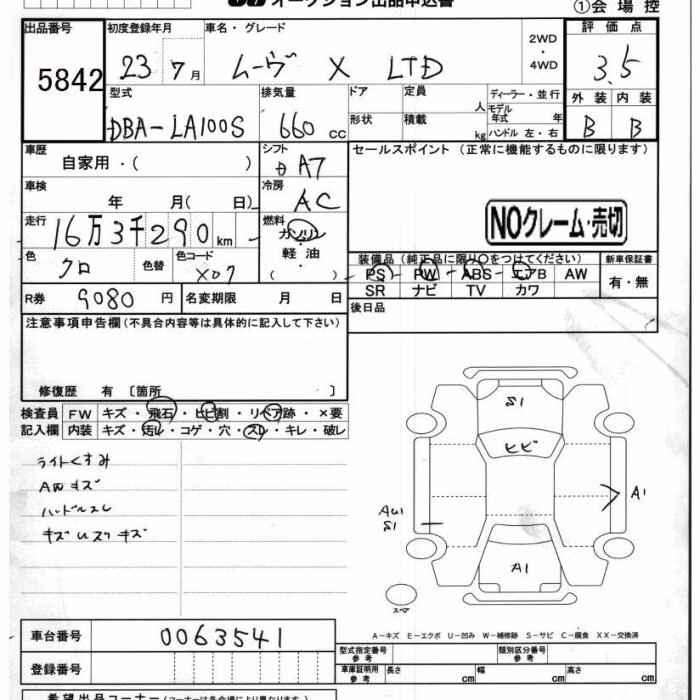 オークション出品申込書
①会場控
出品番号
5842
初度登録年月
23 7月
車名・グレード
ムーヴ X LTD
2WD
・
4WD
評価点
3.5
型式
DBA-LA100S
排気量
660 cc
ドア
定員
人
ディーラー・並行
モデル
年式 年
形状
積載
kg
ハンドル 左・右
外装 内装
B B
車歴
自家用・( )
シフト
A7
セールスポイント(正常に機能するものに限ります)
車検
年 月( 日)
冷房
AC
NOクレーム・売切
走行
16万3千290km
燃料
ガソリン
・
軽油
( )
色
クロ
色替
色コード
X07
装備品(純正品に限り○をつけてください)
新車保証書
PS PW ABS エアB AW
有・無
SR ナビ TV カワ
R券
9080円
名変期限 月 日
後日品
注意事項申告欄(不具合内容等は具体的に記入して下さい)
修復歴 有 〔箇所 〕
検査員 FW キズ・飛石・ヒビ割・リペア跡・×要
記入欄 内装 キズ・汚レ・コゲ・穴・スレ・キレ・破レ
ライトくすみ
AWキズ
ハンドルスレ
S1
ヒビ
A1
S1
A1
スペア
A-キズ E-エクボ U-凹み W-補修跡 S-サビ C-腐食 XX-交換済
車台番号
0063541
登録番号
型式指定番号
参考
類別区分番号
参考
車庫証明用
参考
長さ cm
幅 cm
高さ cm
希望出品コーナー(コーナーは各会場により異なります)